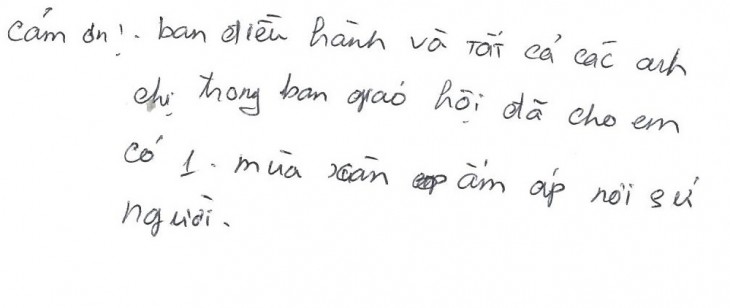 Cám ơn!. ban điều hành và Tất cả các anh
chị trong ban giáo hội đã cho em
có 1. mùa xuân ấm áp nơi sứ
người.